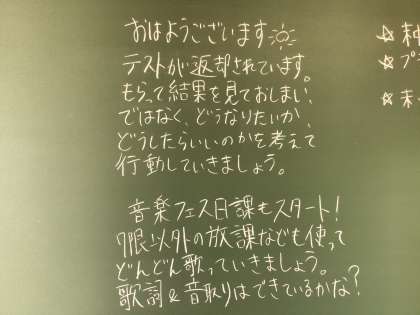 おはようございます☀
テストが返却されています。
もらって結果を見ておしまい、
ではなく、どうなりたいか、
どうしたらいいのかを考えて
行動していきましょう。
音楽フェス日課もスタート!
7限以外の放課なども使って
どんどん歌っていきましょう。
歌詞&音取りはできているかな?
☆
☆プ
☆未